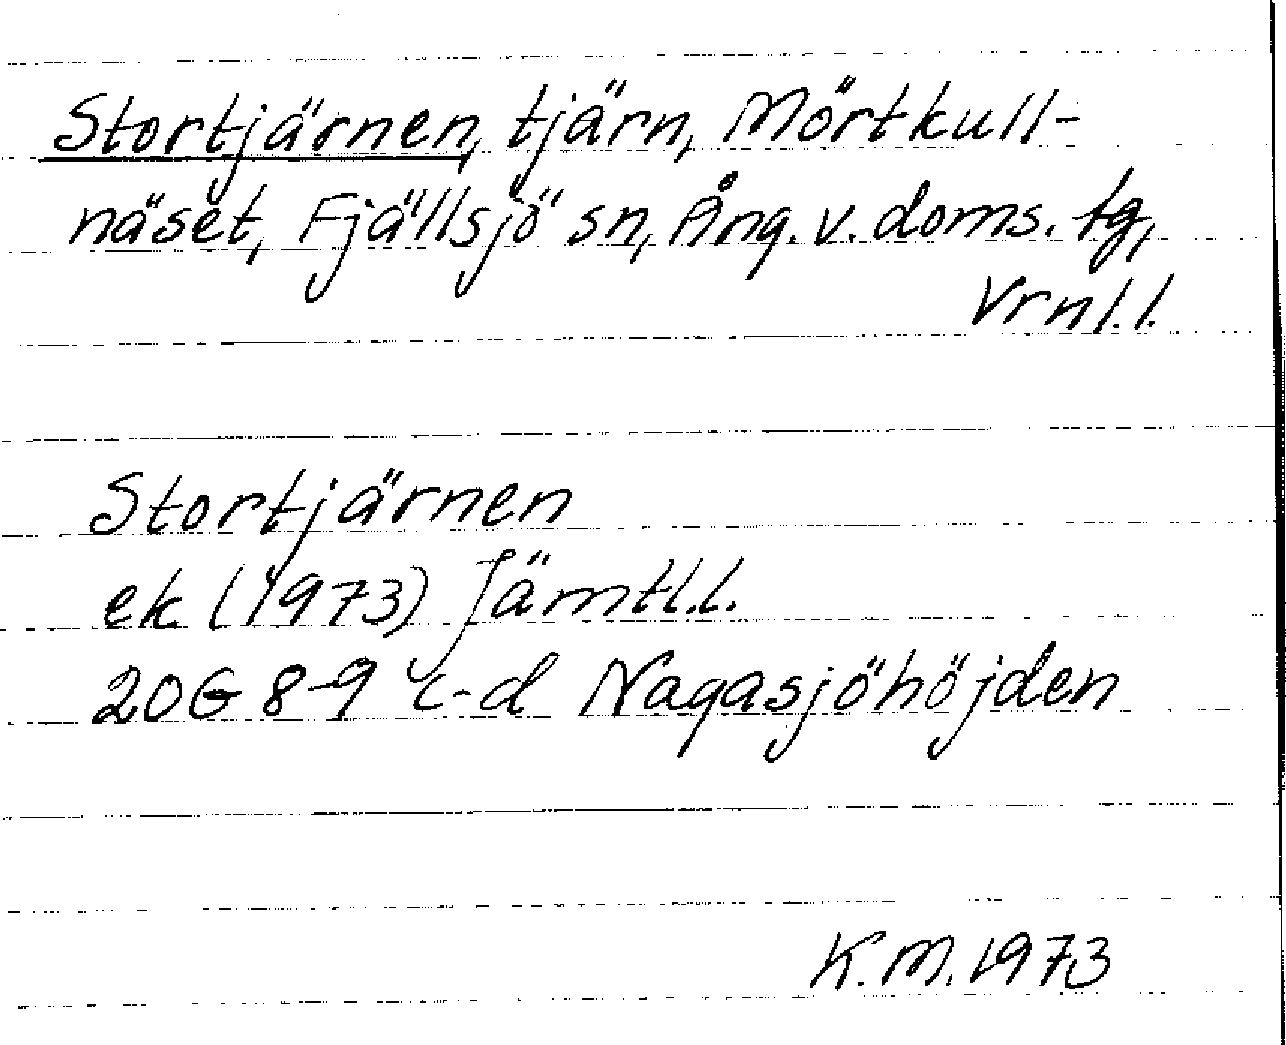 Stortjärnen, tjärn, Mörtkull-
näset, Fjällsjö sn, Ång. v. doms. tg,
Vrnl. l.
Stortjärnen
ek (1973) Jämtl. l.
20G 8-9 c-d Nagasjöhöjden
K.M. 1973